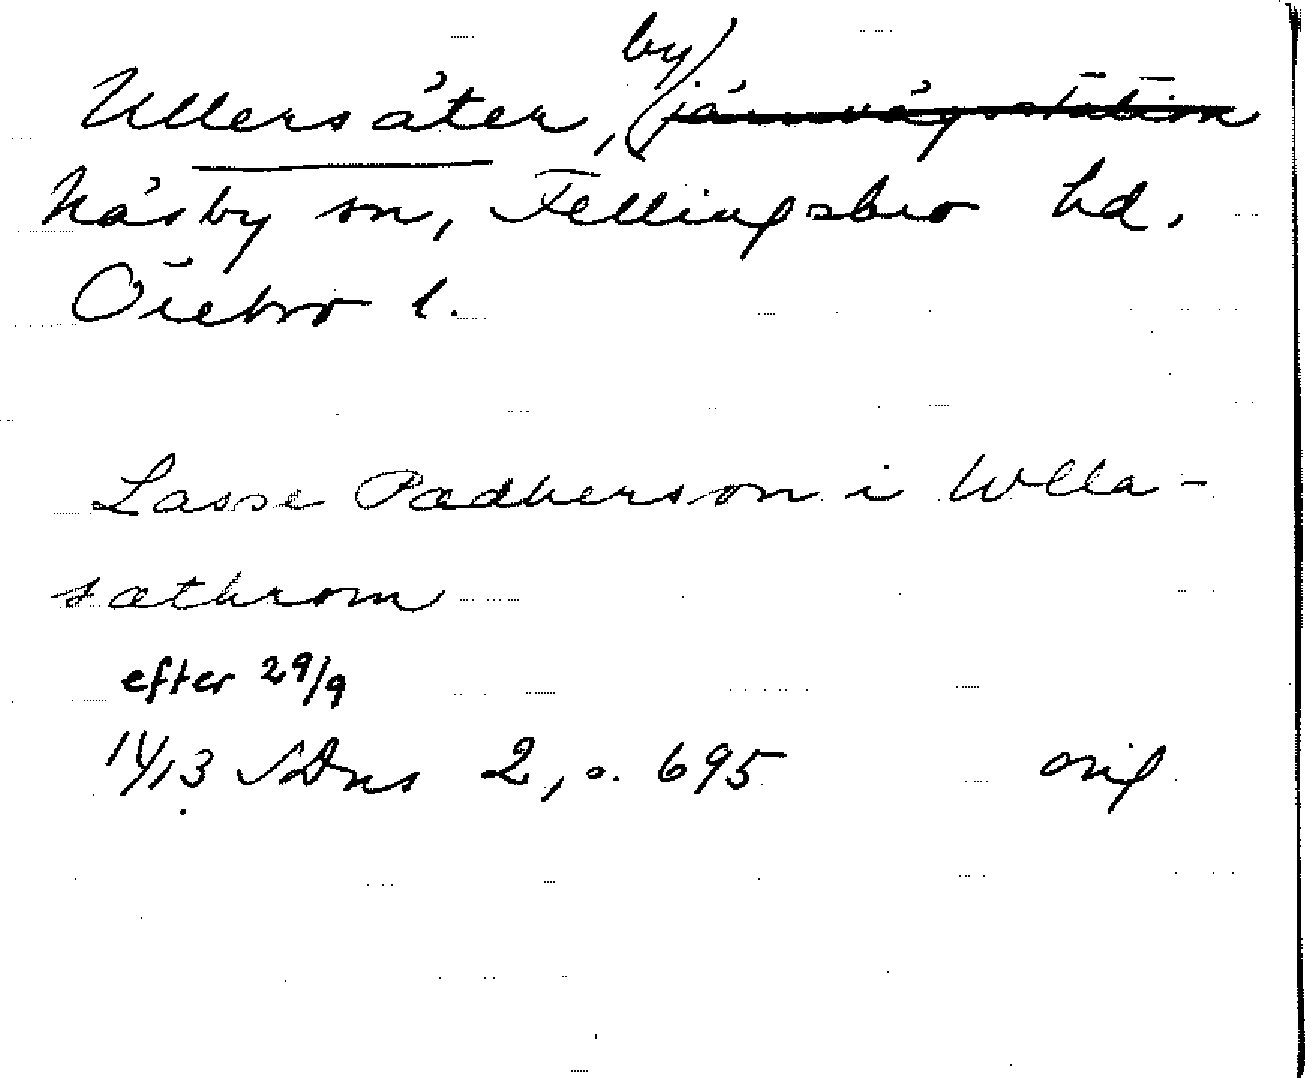 Ullersäter, by (järnvägsstation
Näsby sn, Fellingsbro hd.
Örebro l.
Lasse Pædherson i Wlla-
sæthrom
efter 29/9
1413 SDns 2, s. 695 orig